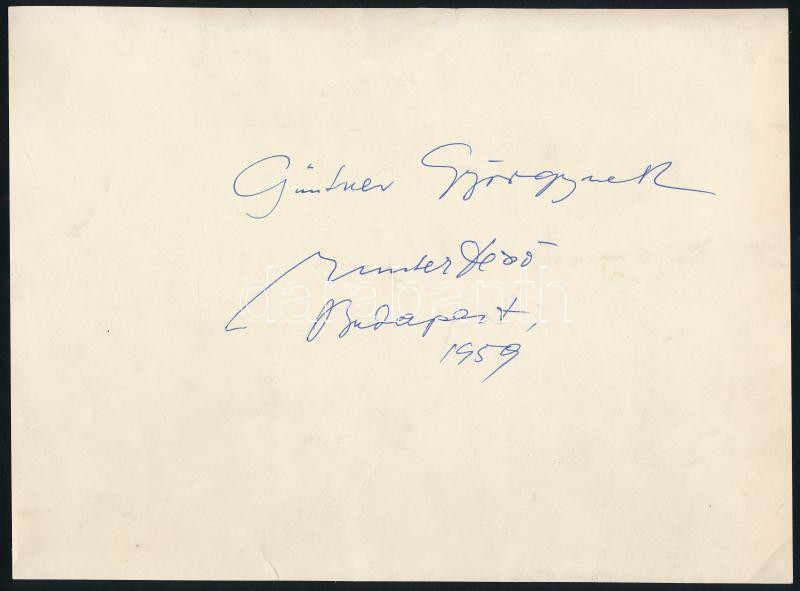 Güntner Györgynek
Munter Dezső
Budapest,
1959
darabanth